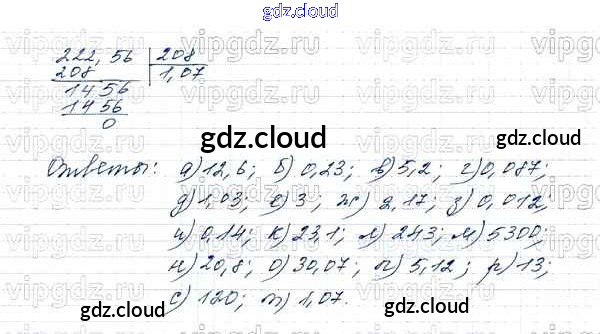 gdz.cloud
vipgdz.ru vipgdz.ru vipgdz.ru
222,56 | 208
208 | 1,07
1456
1456
0
gdz.cloud
Ответы: а) 12,6; б) 0,23; в) 5,2; г) 0,087;
д) 1,03; е) 3; ж) 2,17; з) 0,012;
и) 0,14; к) 23,1; л) 243; м) 5300;
н) 20,8; о) 30,07; п) 5,12; р) 13;
с) 120; т) 1,07.
gdz.cloud gdz.cloud